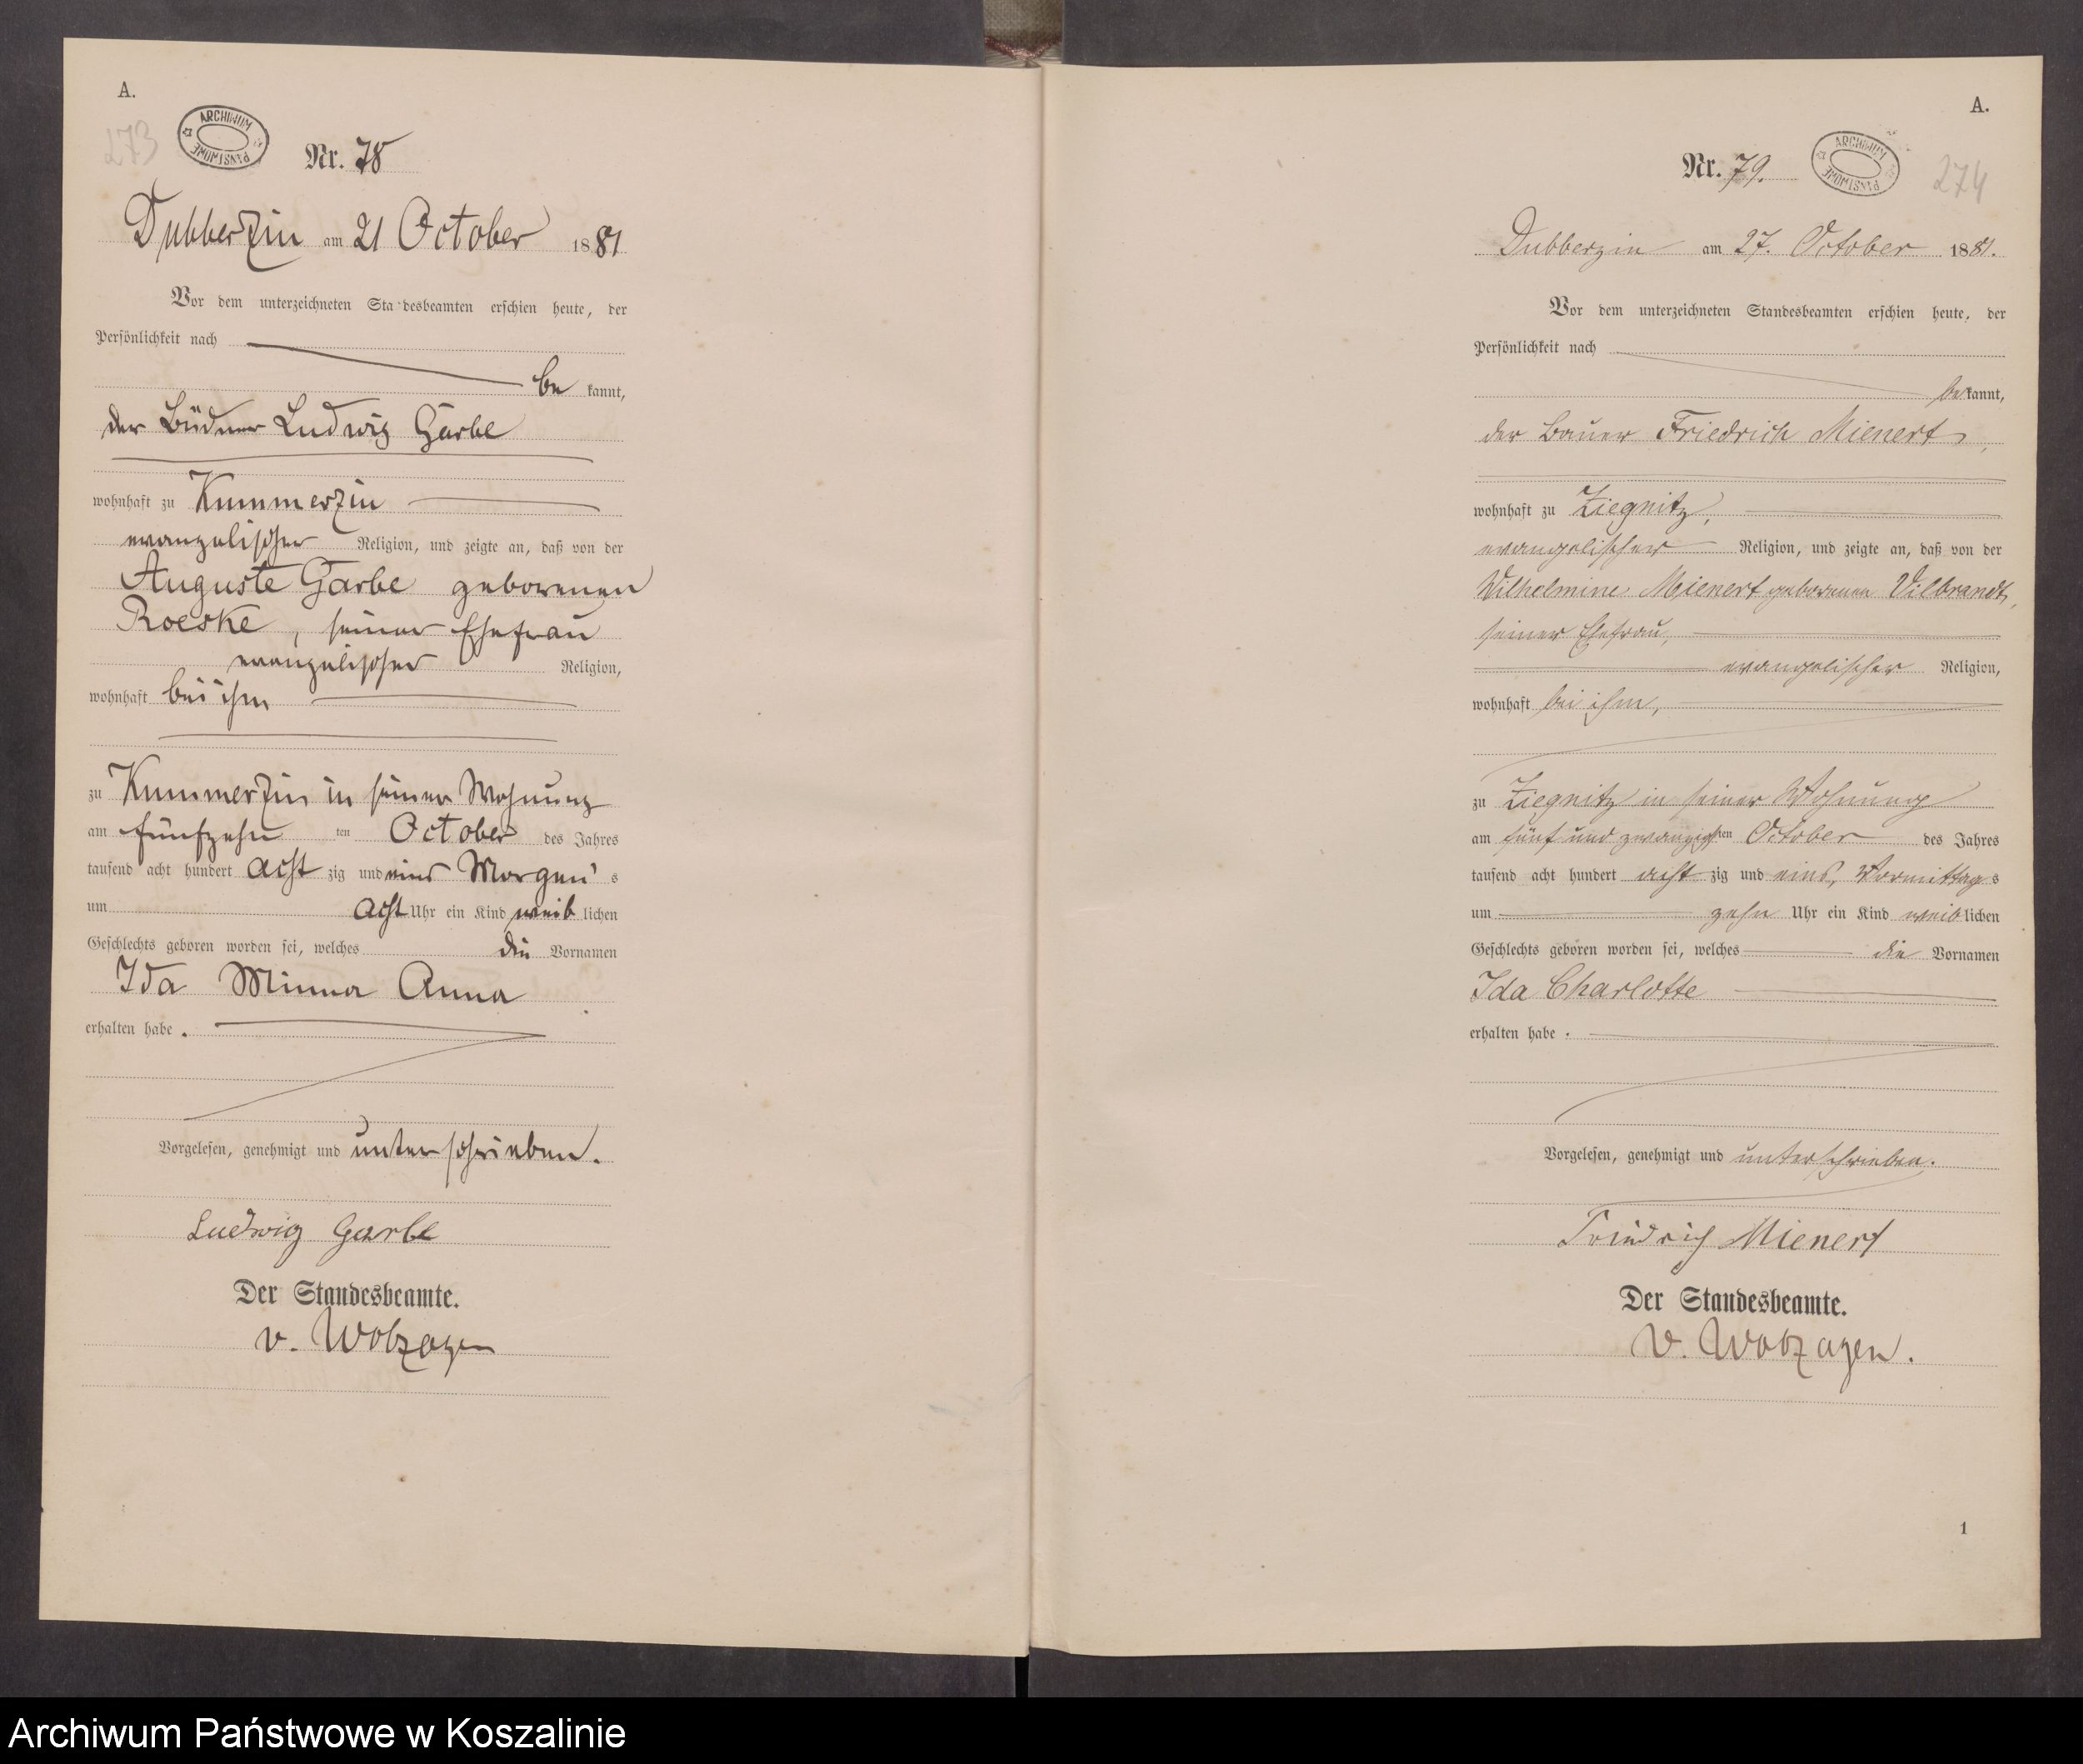 A.
273
ARCHIWUM PAŃSTWOWE
Nr. 78
Dubberzin am 21 October 1881
Vor dem unterzeichneten Standesbeamten erschien heute, der
Persönlichkeit nach
be kannt,
der Büdner Ludwig Garbe
wohnhaft zu Kummerzin
evangelischer Religion, und zeigte an, daß von der
Auguste Garbe geborenen
Roeske, seiner Ehefrau
evangelischer Religion,
wohnhaft bei ihm
zu Kummerzin in seiner Wohnung
am fünfzehn ten October des Jahres
tausend acht hundert acht zig und eins Morgen's
um acht Uhr ein Kind weib lichen
Geschlechts geboren worden sei, welches die Vornamen
Ida Minna Anna
erhalten habe.
Vorgelesen, genehmigt und unterschrieben.
Ludwig Garbe
Der Standesbeamte.
v. Wobzagen
A.
Nr. 79.
ARCHIWUM PAŃSTWOWE
274
Dubberzin am 27. October 1881.
Vor dem unterzeichneten Standesbeamten erschien heute, der
Persönlichkeit nach
be kannt,
der Bauer Friedrich Mienert,
wohnhaft zu Ziegnitz,
evangelischer Religion, und zeigte an, daß von der
Wilhelmine Mienert geborenen Vilbrandt,
seiner Ehefrau,
evangelischer Religion,
wohnhaft bei ihm,
zu Ziegnitz in seiner Wohnung
am fünf und zwanzigsten October des Jahres
tausend acht hundert acht zig und eins, Vormittag s
um zehn Uhr ein Kind weib lichen
Geschlechts geboren worden sei, welches die Vornamen
Ida Charlotte
erhalten habe.
Vorgelesen, genehmigt und unterschrieben.
Friedrich Mienert
Der Standesbeamte.
v. Wobzagen.
1
Archiwum Państwowe w Koszalinie